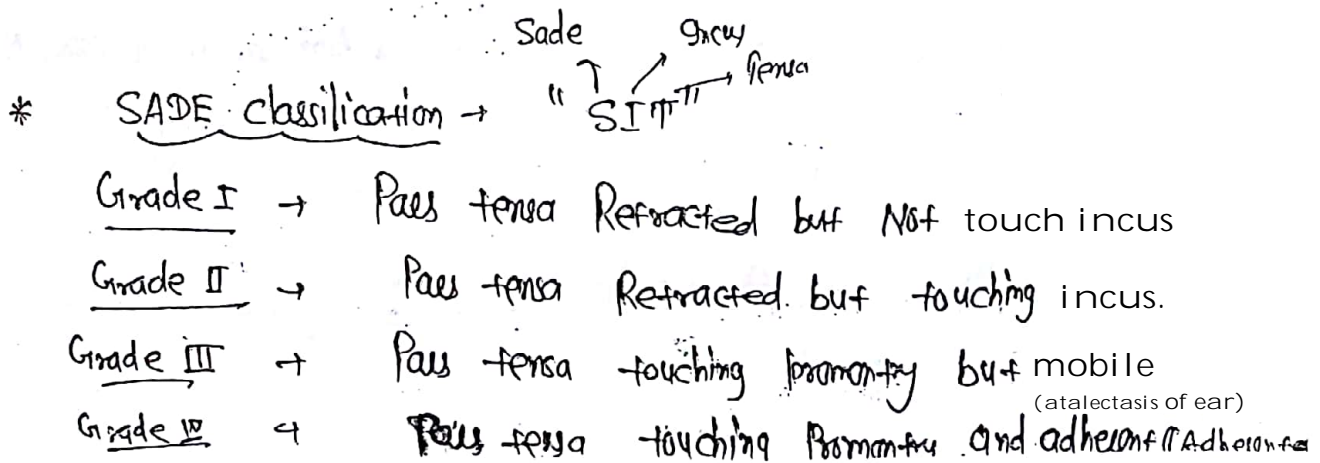 Sade Incus
Tensa
* SADE classification → "SIT"
Grade I → Pars tensa Retracted but Not touch incus
Grade II → Pars tensa Retracted. but touching incus.
Grade III → Pars tensa touching promontry but mobile
(atalectasis of ear)
Grade IV → Pars tensa touching Promontry and adherent